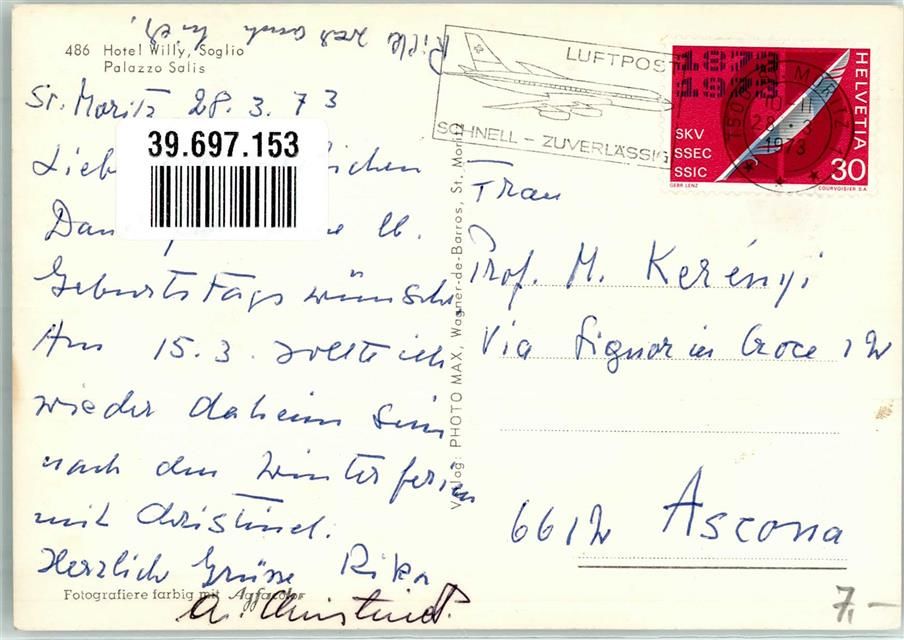 486 Hotel Willy, Soglio
Palazzo Salis
St. Moritz 28.3.73
39.697.153
Geburtstags wünsche
Am 15.3. sollte ich
wieder daheim sein
nach den Winterferien
mit Christinel.
Herzlich Grüsse Rika
Fotografiere farbig mit Agfacolor
Verlag: PHOTO MAX, Wagner-de-Barros, St. Moritz
LUFTPOST
SCHNELL - ZUVERLÄSSIG
1873
1973
HELVETIA
SKV
SSEC
SSIC
30
GEBR LENZ
COURVOISIER S.A.
Frau
Prof. M. Kerényi
Via Signor in Croce 12
6612 Ascona
7,-